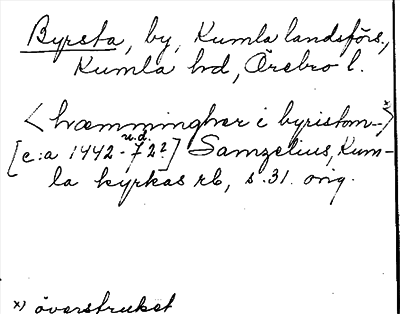 Byrsta, by, Kumla landsförs.,
Kumla hd, Örebro l.
<hæmmingher i byristom-*)>
[c:a 1442-72?] u.d. Samzelius, Kum-
la kyrkas rb, s. 31. orig.
x) överstruket